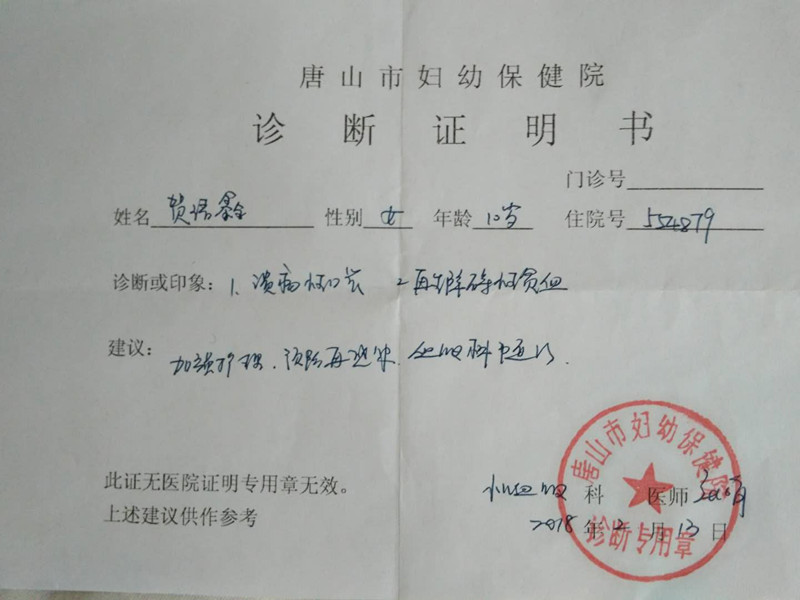 唐山市妇幼保健院
诊断证明书
门诊号
姓名 贾语鑫 性别 女 年龄 10岁 住院号 554879
诊断或印象：1、溃疡性口炎 2 再生障碍性贫血
建议：加强护理、预防再感染、
此证无医院证明专用章无效。
上述建议供作参考
科 医师
2018年2月13日
唐山市妇幼保健院
诊断专用章